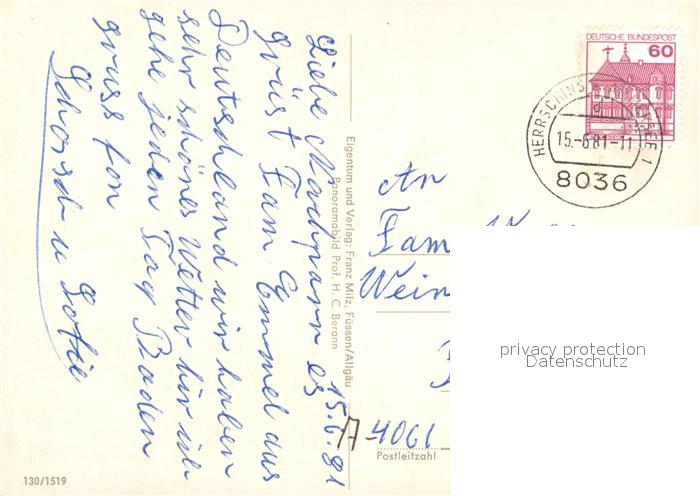 15.6.81
Liebe Nachparn es
grüst Fam Emmel aus
Deutschland wir haben
sehr schönes Wetter hir ich
gehe jeden Tag Baden
gruss fon
Schorsch u Sofie
Eigentum und Verlag: Franz Milz, Füssen/Allgäu
Panoramabild Prof. H. C. Berann
130/1519
DEUTSCHE BUNDESPOST
60
HERRSCHING
15.-6.81-11
8036
An
Fam
Wein
A-4061
Postleitzahl
privacy protection
Datenschutz